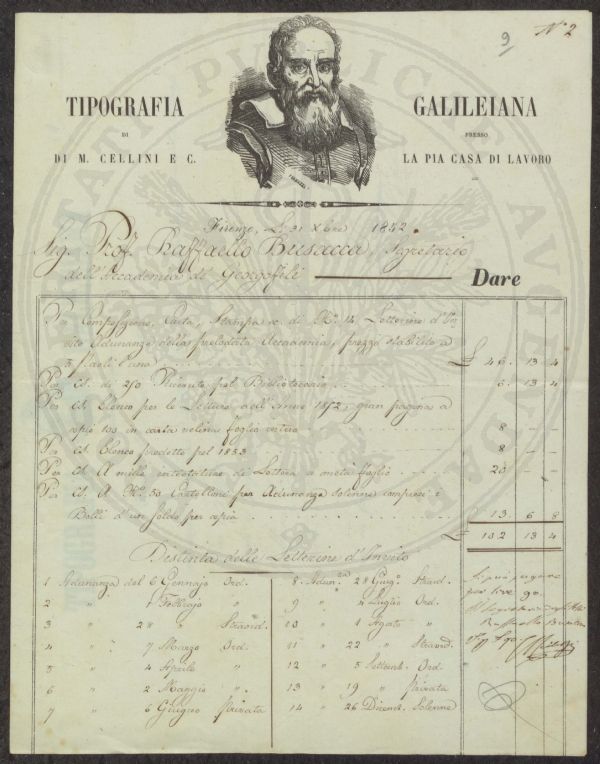 9
N° 2
TIPOGRAFIA GALILEIANA
DI PRESSO
DI M. CELLINI E C. LA PIA CASA DI LAVORO
Firenze, Li 31 Xbre 1852.
Sig. Prof. Raffaello Busacca, Segretario
dell'Accademia de' Georgofili Dare
Per Composizione, Carta, Stampa ec. di N.° 14 Letterine d'In
vito Adunanza della prelodata Accademia, prezzo stabilito a
5 Paoli l'una £ 46. 13. 4
Per Cd. di 250 Ricevute pel Bibliotecario 6. 13. 4
Per Cd. Elenco per le Letture dell'anno 1852, gran pagina a
copie 100 in carta velina foglio intero 8 — —
Per Cd. Elenco predetto pel 1853 8 — —
Per Cd. A mille intestature di Lettera a mezzo foglio 20 — —
Per Cd. A N.° 50 Cartelloni per Adunanza Solenne compresi i
Bolli d'un soldo per copia 13 6 8
£ 102 13 4
Distinta delle Letterine d'Invito
1 Adunanza del 6 Gennajo Ord. 8. Adun.a 28 Giug.o Straord.
2 " 1 Febbrajo " 9 " 4 Luglio Ord.
3 " 28 " Straord. 10 " 1 Agosto "
4 " 7 Marzo Ord. 11 " 22 " Straord.
5 " 4 Aprile " 12 " 5 Settemb. Ord.
6 " 2 Maggio " 13 " 19 " Privata
7 " 6 Giugno Privata 14 " 26 Dicemb. Solenne
Si può pagare
per lire 90.
Il Segretario degli Atti
Raffaello Busacca